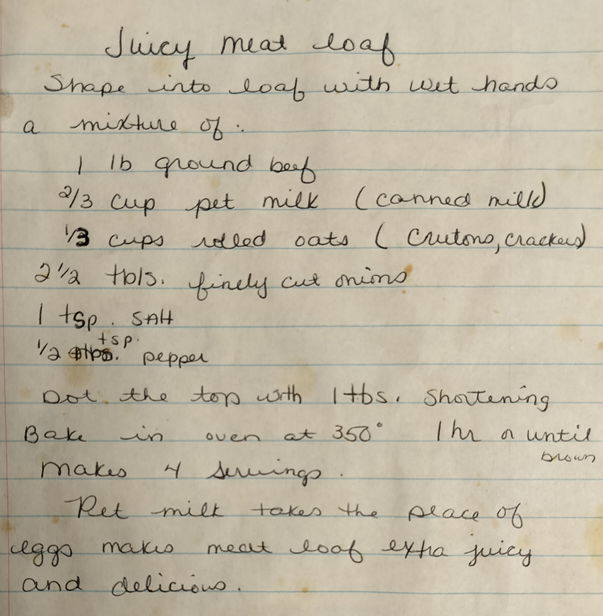 Juicy meat loaf
Shape into loaf with wet hands
a mixture of:
1 lb ground beef
2/3 cup pet milk (canned milk)
1/3 cups rolled oats (crutons, crackers)
2 1/2 tbls. finely cut onions
1 tsp. salt
1/2 tsp. pepper
Dot the top with 1 tbs. shortening
Bake in oven at 350° 1 hr or until
brown
makes 4 servings.
Pet milk takes the place of
eggs makes meat loaf extra juicy
and delicious.